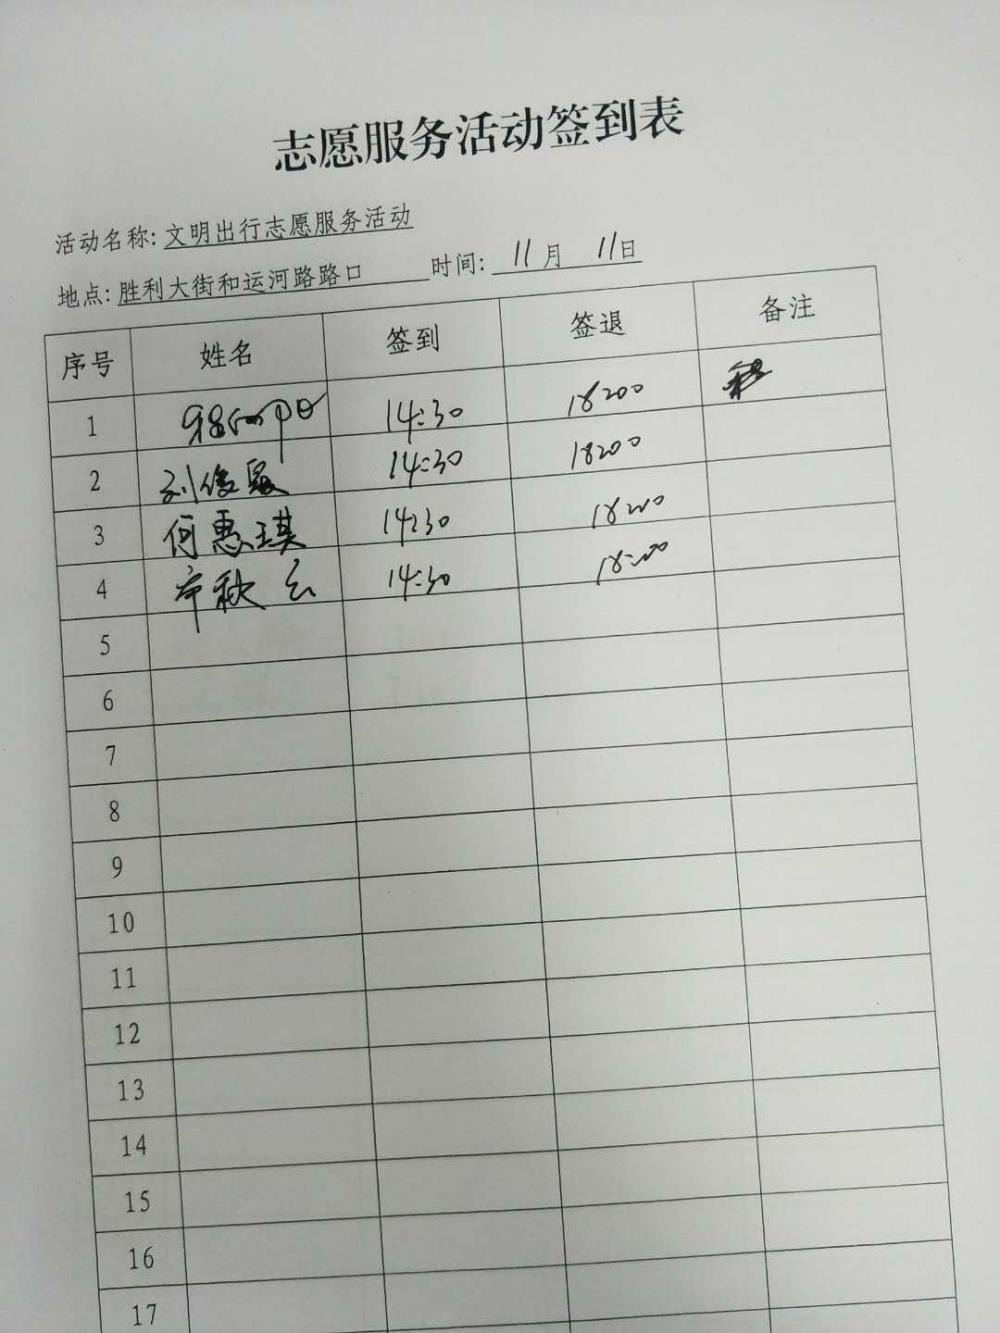 志愿服务活动签到表
活动名称: 文明出行志愿服务活动
地点: 胜利大街和运河路路口 时间: 11月 11日
序号 姓名 签到 签退 备注
1 14:30 18:00
2 刘俊 14:30 18:00
3 何惠琪 14:30 18:00
4 秋云 14:30 18:00
5
6
7
8
9
10
11
12
13
14
15
16
17